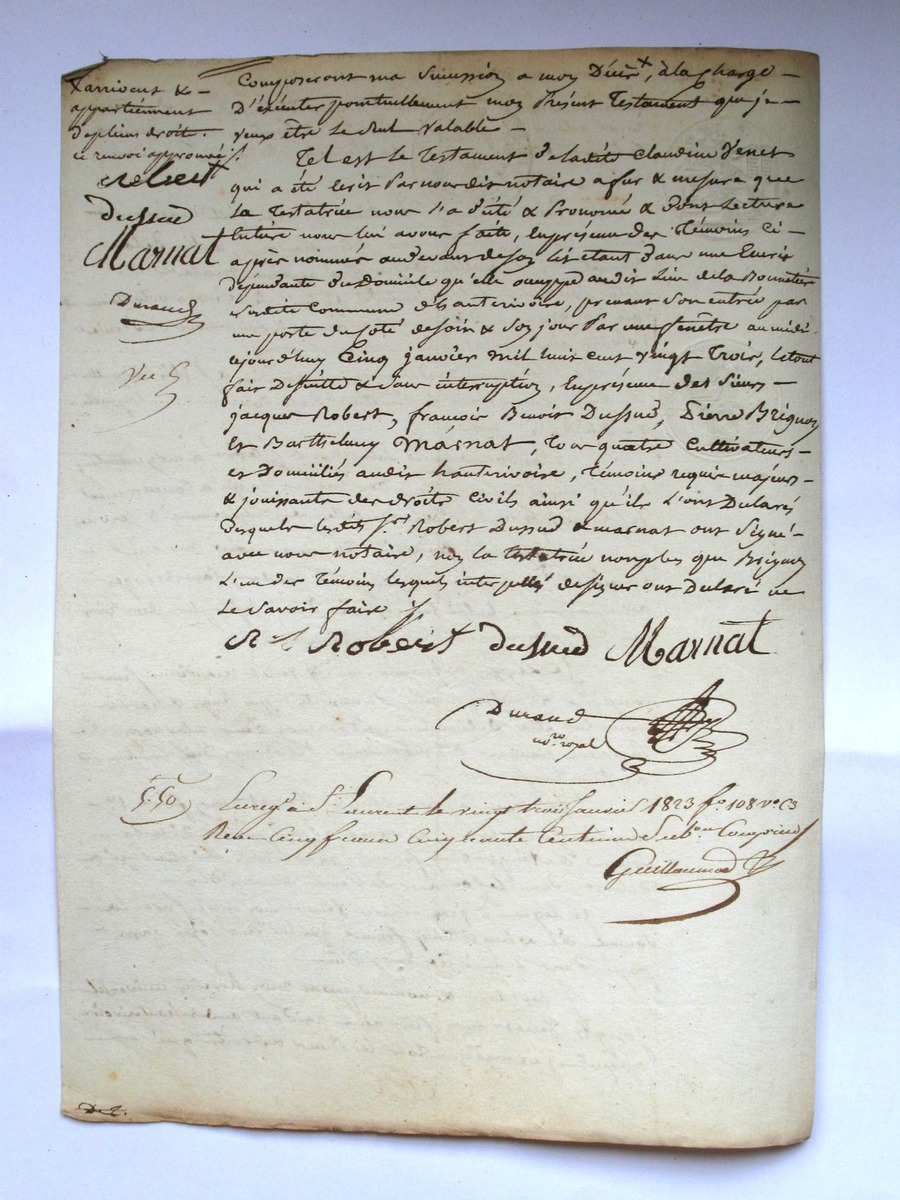 x arrivent &
appartiennent
de plein droit.
ce renvoi approuvé /.
Robert
Dussud
Marnat
Durand
Composeront ma Succession a mon Décès x, à la Charge
D'éxécuter ponctuellement mon Présent Testament que je
veux être le seul valable
Tel est le Testament de ladite Claudine Venet
qui a été Ecrit Par nous dit notaire a fur & mesure que
La Testatrice nous l'a dicté & Prononcé & dont Lecture
Entière nous lui avons faite, En présence des Témoins Ci-
après nommés au devant de son lit étant dans une
dépendante du Domicile qu'elle occuppe audit Lieu de la
susdite Commune d'hauterivoire, prenant Son entrée par
une porte du coté de soir & son jour Par une fenêtre au midi,
aujourd'huy Cinq janvier mil huit cent vingt Trois, le tout
fait De suitte & sans interruption, En présence des Sieurs
jacques Robert, francois Benoit Dussud, Pierre Brignon
Et Barthelemy Marnat, Tous quatre Cultivateurs
et Domiciliés audit hauterivoire, Témoins requis majeurs
& jouissants des droits Civils ainsi qu'ils L'ont Déclaré
Desquels lesdits Srs Robert Dussud & marnat ont Signé
avec nous notaire, non la testatrice non plus que Brignon
L'un des Témoins lesquels interpellés de signer ont Déclaré ne
Le Savoir faire
Robert Dussud Marnat
Durand
nore royal
5.50
Enregé à St Laurent le vingt trois Janvier 1823 fo 108 vo C3
Reçu Cinq francs Cinquante Centimes Subon Comprise
Guillaumod